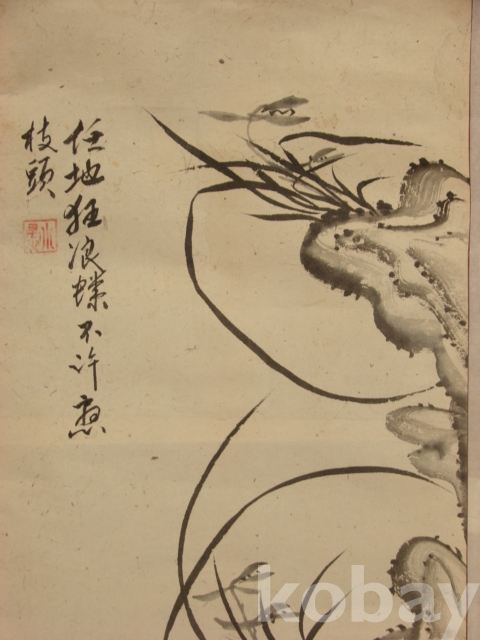 任地狂浪蝶不許恋
枝頭
kobay